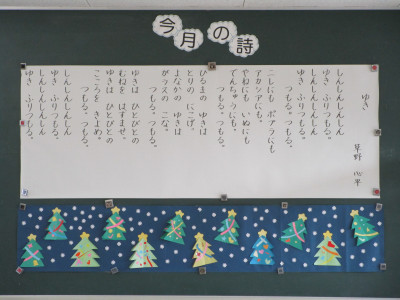 今月の詩
ゆき
草野 心平
しんしんしんしん
ゆき ふりつもる。
しんしんしんしん
ゆき ふりつもる。
つもる。つもる。
こしにも ポプラにも
アカシアにも。
やねにも いぬにも
でんちゅうにも。
つもる。つもる。
ひるまの ゆきは
とりの にこげ。
よなかの ゆきは
ガラスの こな。
つもる。つもる。
ゆきは ひとびとの
むねを はずませ。
ゆきは ひとびとの
こころを きよめ。
つもる。つもる。
しんしんしんしん
ゆき ふりつもる。
しんしんしんしん
ゆき ふりつもる。